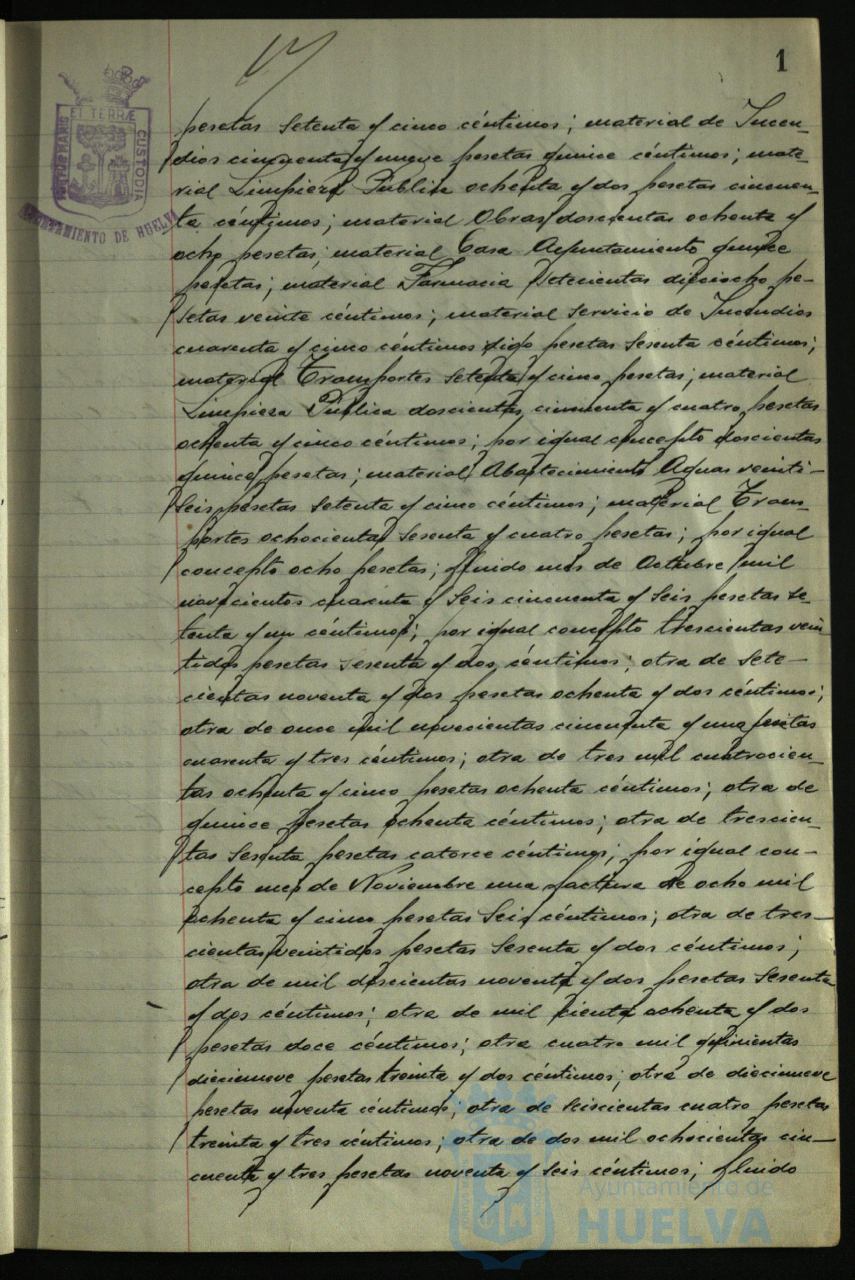 1
PORTUS MARIS
ET TERRÆ
CUSTODIA
AYUNTAMIENTO DE HUELVA
pesetas setenta y cinco céntimos; material de Incen-
dios cincuenta y nueve pesetas quince céntimos; mate-
rial Limpieza Publica ochenta y dos pesetas cincuen-
ta céntimos; material Obras doscientas ochenta y
ocho pesetas; material Casa Ayuntamiento quince
pesetas; material Farmacia setecientas dieciocho pe-
setas veinte céntimos; material servicio de Incendios
cuarenta y cinco céntimos digo pesetas sesenta céntimos;
material Transportes setenta y cinco pesetas; material
Limpieza Pública doscientas cincuenta y cuatro pesetas
ochenta y cinco céntimos; por igual concepto doscientas
quince pesetas; material Abastecimiento Aguas veinti-
seis pesetas setenta y cinco céntimos; material Trans-
portes ochocientas sesenta y cuatro pesetas; por igual
concepto ocho pesetas; fluido mes de Octubre mil
novecientos cuarenta y seis cincuenta y seis pesetas se-
tenta y un céntimos; por igual concepto trescientas vein-
tidos pesetas sesenta y dos céntimos; otra de sete-
cientas noventa y dos pesetas ochenta y dos céntimos;
otra de once mil novecientas cincuenta y una pesetas
cuarenta y tres céntimos; otra de tres mil cuatrocien-
tas ochenta y cinco pesetas ochenta céntimos; otra de
quince pesetas ochenta céntimos; otra de trescien-
tas sesenta pesetas catorce céntimos; por igual con-
cepto mes de Noviembre una factura de ocho mil
ochenta y cinco pesetas seis céntimos; otra de tres-
cientas veintidos pesetas sesenta y dos céntimos;
otra de mil doscientas noventa y dos pesetas sesenta
y dos céntimos; otra de mil ciento ochenta y dos
pesetas doce céntimos; otra cuatro mil quinientas
diecinueve pesetas treinta y dos céntimos; otra de diecinueve
pesetas noventa céntimos; otra de seiscientas cuatro pesetas
treinta y tres céntimos; otra de dos mil ochocientas cin-
cuenta y tres pesetas noventa y seis céntimos; fluido
Ayuntamiento de
HUELVA